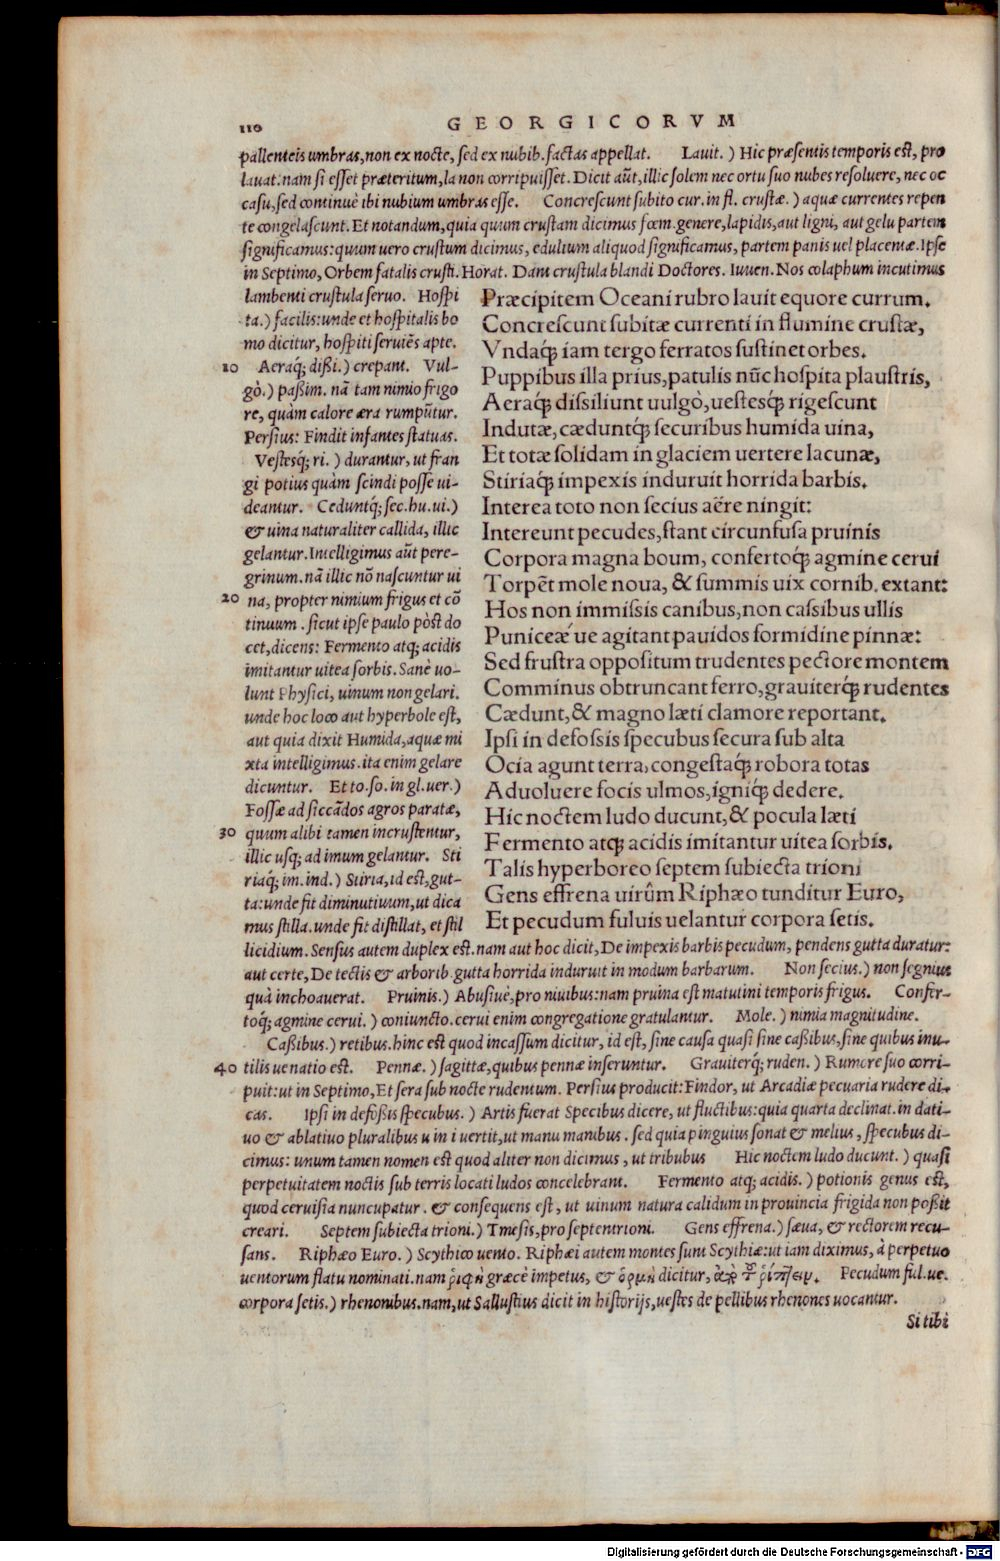 110 GEORGICORVM
pallenteis umbras, non ex nocte, sed ex nubib. factas appellat. Lauit.) Hic præsentis temporis est, pro
lauat. nam si esset præteritum, la non corripuisset. Dicit aũt, illic solem nec ortu suo nubes resoluere, nec oc
casu, sed continuè ibi nubium umbras esse. Concrescunt subito cur. in fl. crustæ.) aquæ currentes repen
te congelascunt. Et notandum, quia quum crustam dicimus fœm. genere, lapidis, aut ligni, aut gelu partem
significamus: quum uero crustum dicimus, edulium aliquod significamus, partem panis uel placentæ. Ipse
in Septimo, Orbem fatalis crusti. Horat. Dant crustula blandi Doctores. Iuuen. Nos colaphum incutimus
lambenti crustula seruo. Hospi
ta.) facilis: unde et hospitalis ho
mo dicitur, hospiti seruiẽs apte.
10 Aeraq́; dißi.) crepant. Vul-
gò.) paßim. nã tam nimio frigo
re, quàm calore æra rumpũtur.
Persius: Findit infantes statuas.
Vestesq́; ri.) durantur, ut fran
gi potius quàm scindi posse ui-
deantur. Ceduntq́; sec. hu. ui.)
& uina naturaliter callida, illic
gelantur. Intelligimus aũt pere-
grinum. nã illic nõ nascuntur ui
20 na, propter nimium frigus et cõ
tinuum. sicut ipse paulo pòst do
cet, dicens: Fermento atq; acidis
imitantur uitea sorbis. Sanè uo-
lunt Physici, uinum non gelari.
unde hoc loco aut hyperbole est,
aut quia dixit Humida, aquæ mi
xta intelligimus. ita enim gelare
dicuntur. Et to. so. in gl. uer.)
Fossæ ad siccãdos agros paratæ,
30 quum alibi tamen incrustentur,
illic usq; ad imum gelantur. Sti
riaq́; im. ind.) Stiria, id est, gut-
ta: unde fit diminutiuum, ut dica
mus stilla. unde fit distillat, et stil
Præcipitem Oceani rubro lauit equore currum.
Concrescunt subitæ currenti in flumine crustæ,
Vndaq́; iam tergo ferratos sustinet orbes.
Puppibus illa prius, patulis nũc hospita plaustris,
Aeraq́; dissiliunt uulgò, uestesq́; rigescunt
Indutæ, cæduntq́; securibus humida uina,
Et totæ solidam in glaciem uertere lacunæ,
Stiriaq́; impexis induruit horrida barbis.
Interea toto non secius aëre ningit:
Intereunt pecudes, stant circunfusa pruinis
Corpora magna boum, confertoq́; agmine cerui
Torpẽt mole noua, & summis uix cornib. extant:
Hos non immissis canibus, non cassibus ullis
Puniceæ ue agitant pauidos formidine pinnæ:
Sed frustra oppositum trudentes pectore montem
Comminus obtruncant ferro, grauiterq́; rudentes
Cædunt, & magno læti clamore reportant.
Ipsi in defossis specubus secura sub alta
Ocia agunt terra, congestaq́; robora totas
Aduoluere focis ulmos, igniq́; dedere.
Hic noctem ludo ducunt, & pocula læti
Fermento atq; acidis imitantur uitea sorbis.
Talis hyperboreo septem subiecta trioni
Gens effrena uirûm Riphæo tunditur Euro,
Et pecudum fuluis uelantur corpora setis.
licidium. Sensus autem duplex est. nam aut hoc dicit, De impexis barbis pecudum, pendens gutta duratur:
aut certe, De tectis & arborib. gutta horrida induruit in modum barbarum. Non secius.) non segnius
quà inchoauerat. Pruinis.) Abusiuè, pro niuibus: nam pruina est matutini temporis frigus. Confer-
toq́; agmine cerui.) coniuncto. cerui enim congregatione gratulantur. Mole.) nimia magnitudine.
Caßibus.) retibus. hinc est quod incassum dicitur, id est, sine causa quasi sine caßibus, sine quibus inu-
40 tilis uenatio est. Pennæ.) sagittæ, quibus pennæ inseruntur. Grauiterq́; ruden.) Rumore suo corri-
puit: ut in Septimo, Et sera sub nocte rudentum. Persius producit: Findor, ut Arcadiæ pecuaria rudere di-
cas. Ipsi in defoßis specubus.) Artis fuerat Specibus dicere, ut fluctibus: quia quarta declinat. in dati-
uo & ablatiuo pluralibus u in i uertit, ut manu manibus. sed quia pinguius sonat & melius, specubus di-
cimus: unum tamen nomen est quod aliter non dicimus, ut tribubus Hic noctem ludo ducunt.) quasi
perpetuitatem noctis sub terris locati ludos concelebrant. Fermento atq; acidis.) potionis genus est,
quod ceruisia nuncupatur. & consequens est, ut uinum natura calidum in prouincia frigida non poßit
creari. Septem subiecta trioni.) Tmesis, pro septentrioni. Gens effrena.) sæua, & rectorem recu-
sans. Riphæo Euro.) Scythico uento. Riphæi autem montes sunt Scythiæ: ut iam diximus, à perpetuo
uentorum flatu nominati. nam ῥιφὴ græcè impetus, & ὁρμὴ dicitur, ἀπὸ τοῦ ῥίπτειν. Pecudum ful. ue.
corpora setis.) rhenonibus. nam, ut Sallustius dicit in historijs, uestes de pellibus rhenones uocantur.
Si tibi
Digitalisierung gefördert durch die Deutsche Forschungsgemeinschaft - DFG